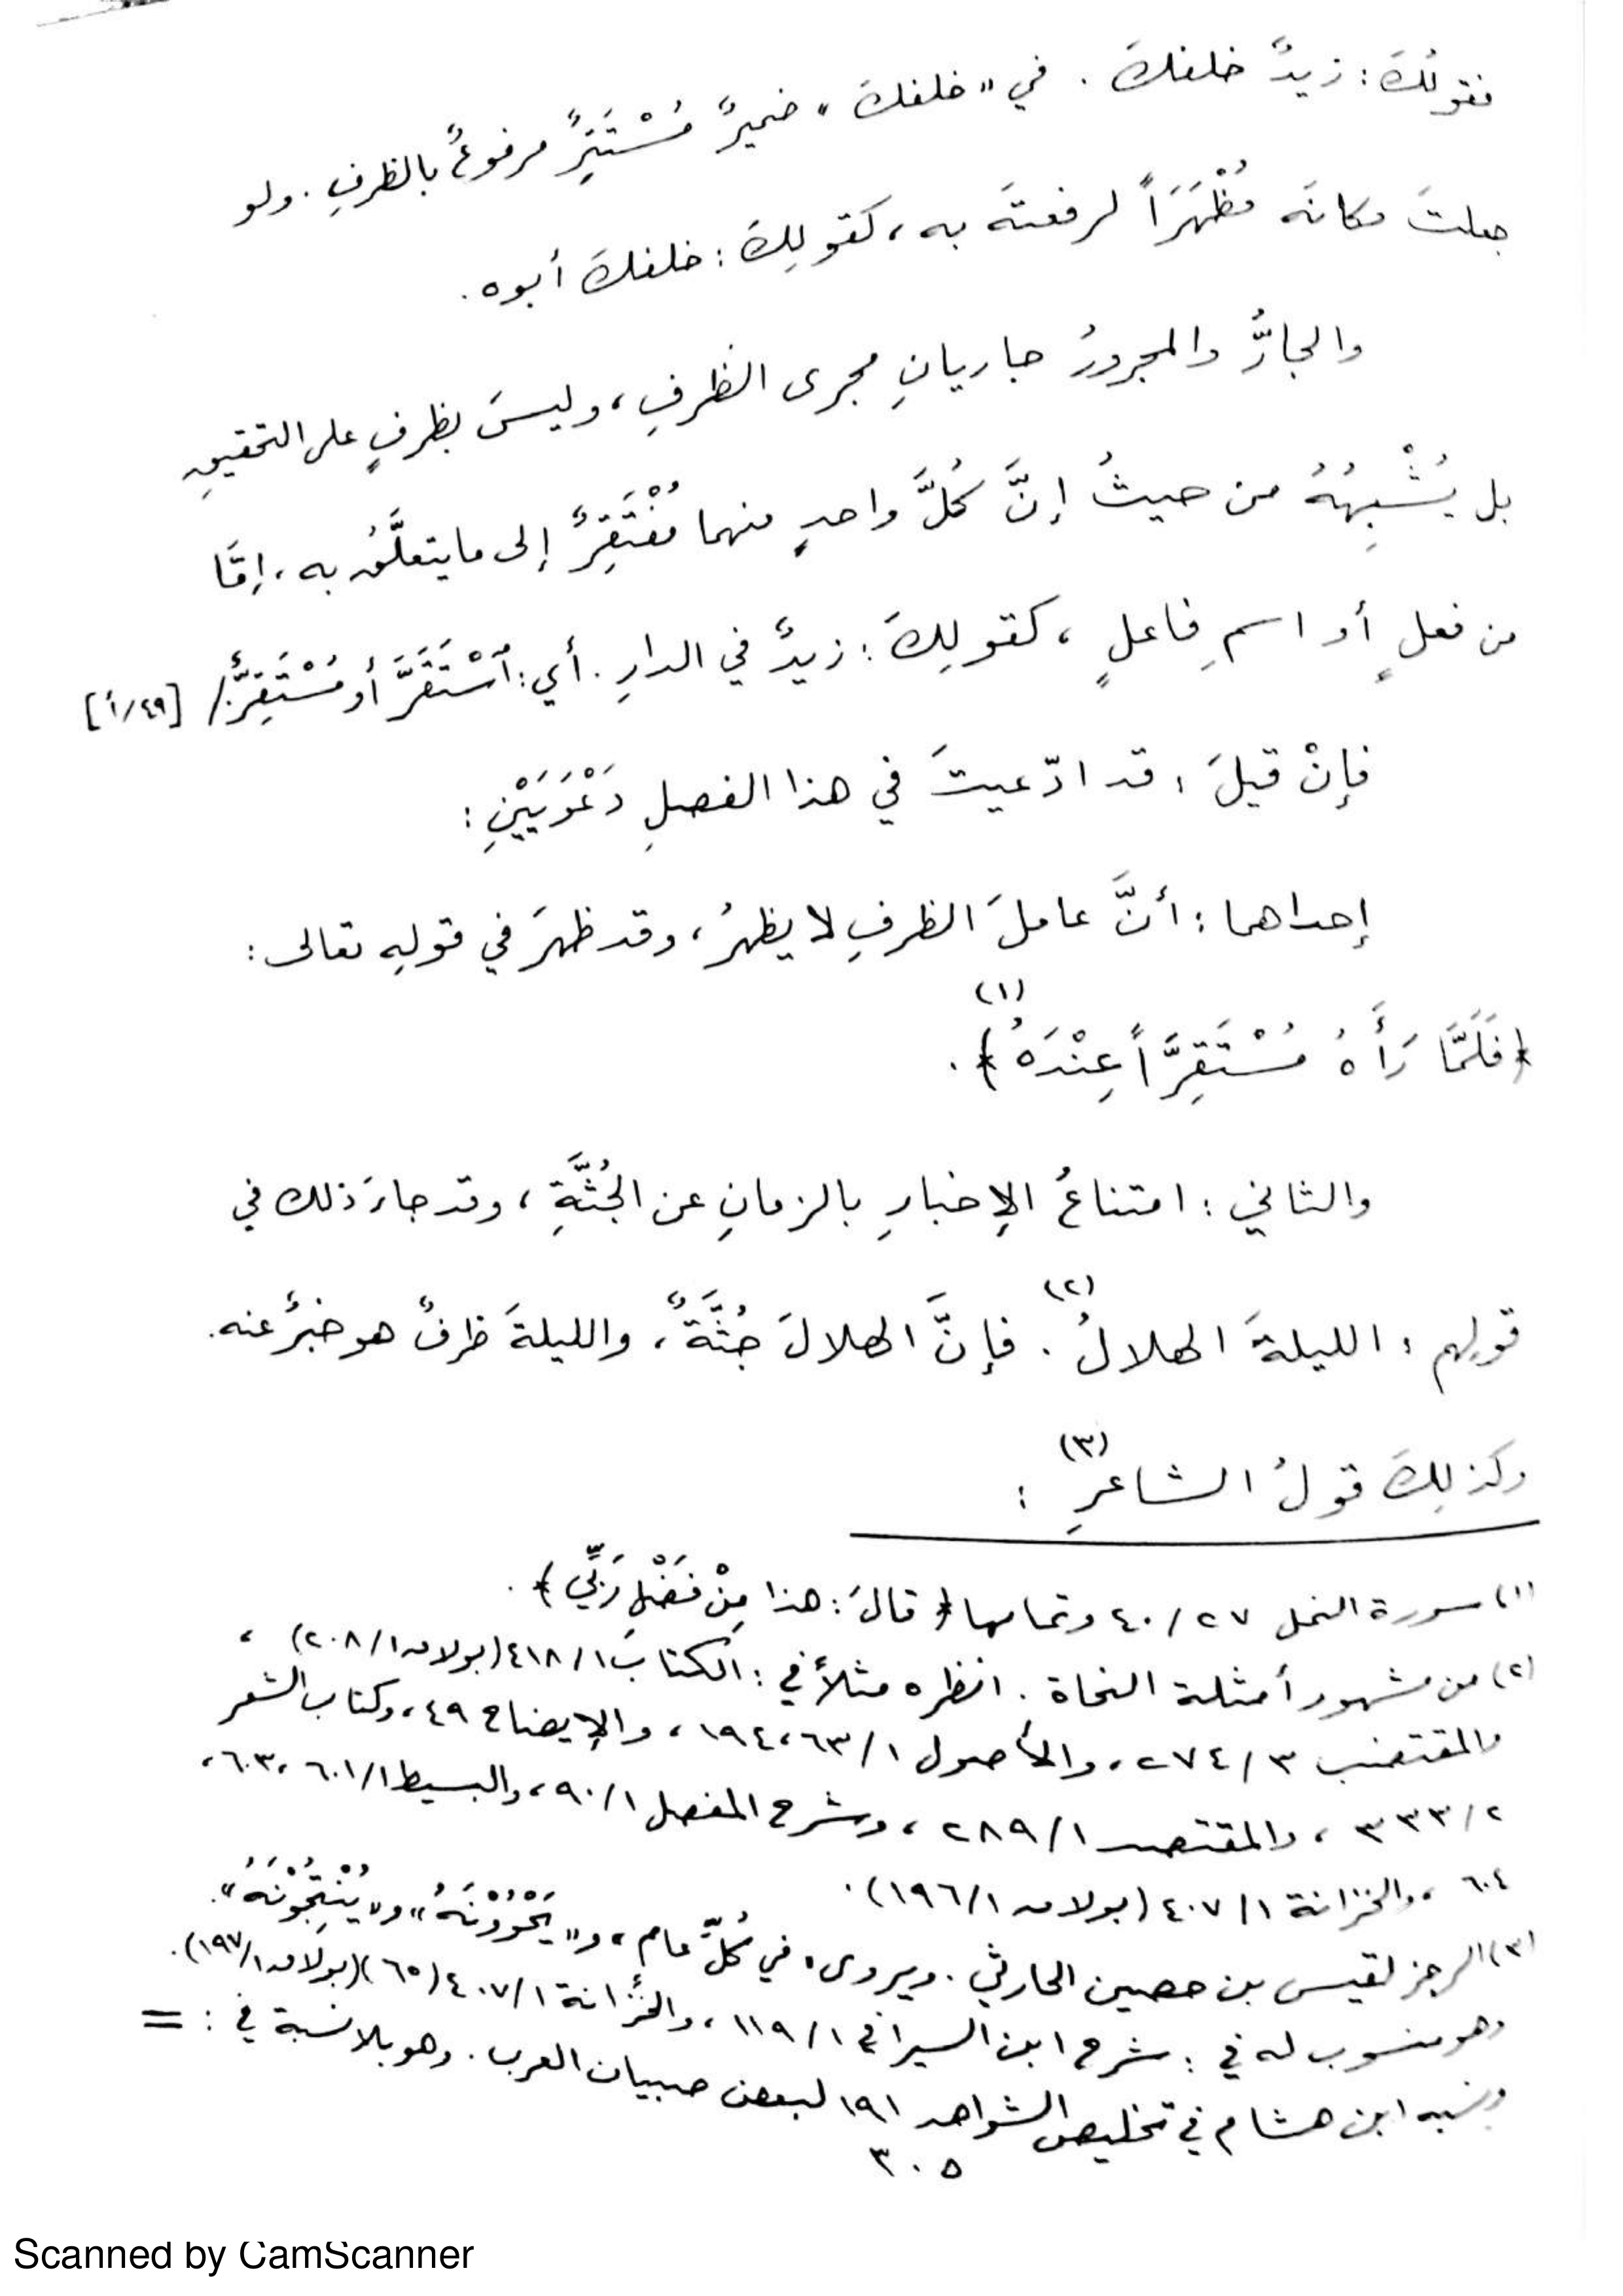 فقولُكَ: زيدٌ خلفكَ. في «خلفكَ» ضميرٌ مُسْتَتِرٌ مرفوعٌ بالظرفِ. ولو
جعلتَ مكانَه مُظْهَرَاً لرفعتَه به، كقولِكَ: خلفكَ أبوه.
والجارُّ والمجرورُ جاريانِ مجرى الظرفِ، وليسَ بظرفٍ على التحقيقِ
بل يُشْبِهُهُ من حيثُ إنَّ كُلَّ واحدٍ منهما مُفْتَقِرٌ إلى ما يتعلَّقُ به، إمَّا
من فعلٍ أو اسمِ فاعلٍ، كقولِكَ: زيدٌ في الدارِ. أي: اُسْتَقَرَّ أو مُسْتَقِرٌّ./ [٤٩/أ]
فإنْ قيلَ: قد ادّعيتَ في هذا الفصلِ دَعْوَيَيْنِ:
إحداهما: أنَّ عاملَ الظرفِ لا يظهرُ، وقد ظهرَ في قولِه تعالى:
﴿فَلَمَّا رَأَهُ مُسْتَقِرَّاً عِنْدَهُ﴾(١).
والثاني: امتناعُ الإخبارِ بالزمانِ عن الجُثَّةِ، وقد جاءَ ذلك في
قولِهم: الليلةَ الهلالُ(٢). فإنَّ الهلالَ جُثَّةٌ، والليلةَ ظرفٌ هو خبرٌ عنه.
وكذلِكَ قولُ الشاعرِ(٣):
(١) سورة النمل ٢٧/٤٠ وتمامها ﴿قالَ: هذا مِنْ فَضْلِ رَبِّي﴾.
(٢) من مشهور أمثلة النحاة. انظره مثلاً في: الكتاب ١/٤١٨ (بولاق ١/٢٠٨)،
والمقتضب ٣/٢٧٤، والأصول ١/٦٣، ١٩٤، والإيضاح ٤٩، وكتاب الشعر
٢/٣٣٣، والمقتصد ١/٢٨٩، وشرح المفصل ١/٩٠، والبسيط ١/٦٠١، ٦٠٣،
٦٠٤، والخزانة ١/٤٠٧ (بولاق ١/١٩٦).
(٣) الرجز لقيس بن حصين الحارثي. ويروى: في كُلِّ عام، و«يَحْوُوْنَهُ» و«يُنْتِجُوْنَهُ».
وهو منسوب له في: شرح ابن السيرافي ١/١١٩، والخزانة ١/٤٠٧ (٦٥) (بولاق ١/١٩٧).
ونسبه ابن هشام في تخليص الشواهد ١٩١ لبعض صبيان العرب. وهو بلا نسبة في: =
٣٠٥
Scanned by CamScanner